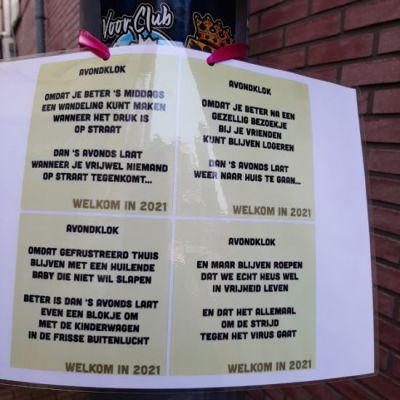 Voor Club
AVONDKLOK
OMDAT JE BETER 'S MIDDAGS
EEN WANDELING KUNT MAKEN
WANNEER HET DRUK IS
OP STRAAT
DAN 'S AVONDS LAAT
WANNEER JE VRIJWEL NIEMAND
OP STRAAT TEGENKOMT...
WELKOM IN 2021
AVONDKLOK
OMDAT JE BETER NA EEN
GEZELLIG BEZOEKJE
BIJ JE VRIENDEN
KUNT BLIJVEN LOGEREN
DAN 'S AVONDS LAAT
WEER NAAR HUIS TE GAAN...
WELKOM IN 2021
AVONDKLOK
OMDAT GEFRUSTREERD THUIS
BLIJVEN MET EEN HUILENDE
BABY DIE NIET WIL SLAPEN
BETER IS DAN 'S AVONDS LAAT
EVEN EEN BLOKJE OM
MET DE KINDERWAGEN
IN DE FRISSE BUITENLUCHT
WELKOM IN 2021
AVONDKLOK
EN MAAR BLIJVEN ROEPEN
DAT WE ECHT HEUS WEL
IN VRIJHEID LEVEN
EN DAT HET ALLEMAAL
OM DE STRIJD
TEGEN HET VIRUS GAAT
WELKOM IN 2021